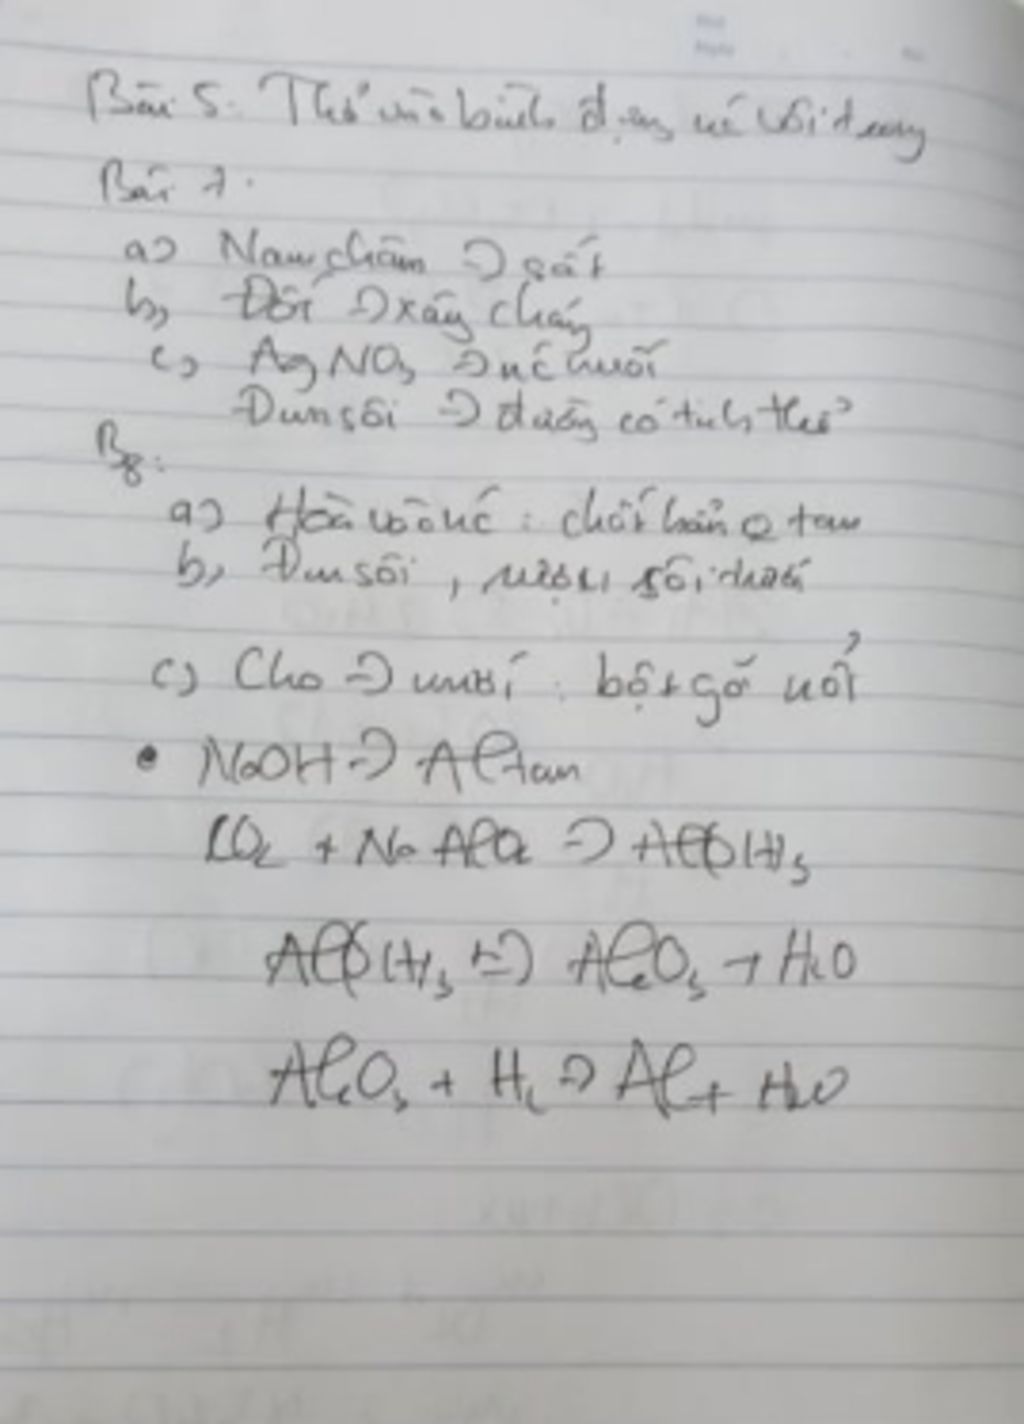 Bài 5: Thổ vào bình đựng nc vôi trong
Bài 7:
a) Nam châm => sắt
b, Đốt => xăng cháy
c, AgNO3 => nc muối
Đun sôi => đường có tinh thể
B8:
a) Hoà vào nc : chất bẩn o tan
b, Đun sôi, rượu sôi trước
c) Cho => nước : bột gỗ nổi
• NaOH => Al tan
CO2 + NaAlO2 => Al(OH)3
Al(OH)3 => Al2O3 + H2O
Al2O3 + H2 => Al + H2O